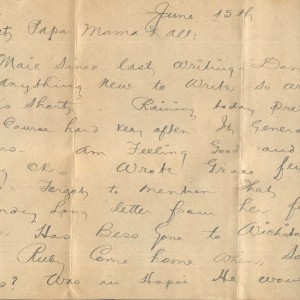 June 15th
Papa Mama & all:
Mail Since last writing. Don
anything New to Write so
is Short. Raining today
Course hard very often. It Genera
Am Feeling Good and
ok. Wrote Grace few
Forgot to mention That
Long letter from her
Has Bess Gone to Wichita
Ruby Come home When, So
Was in Hopes He wou